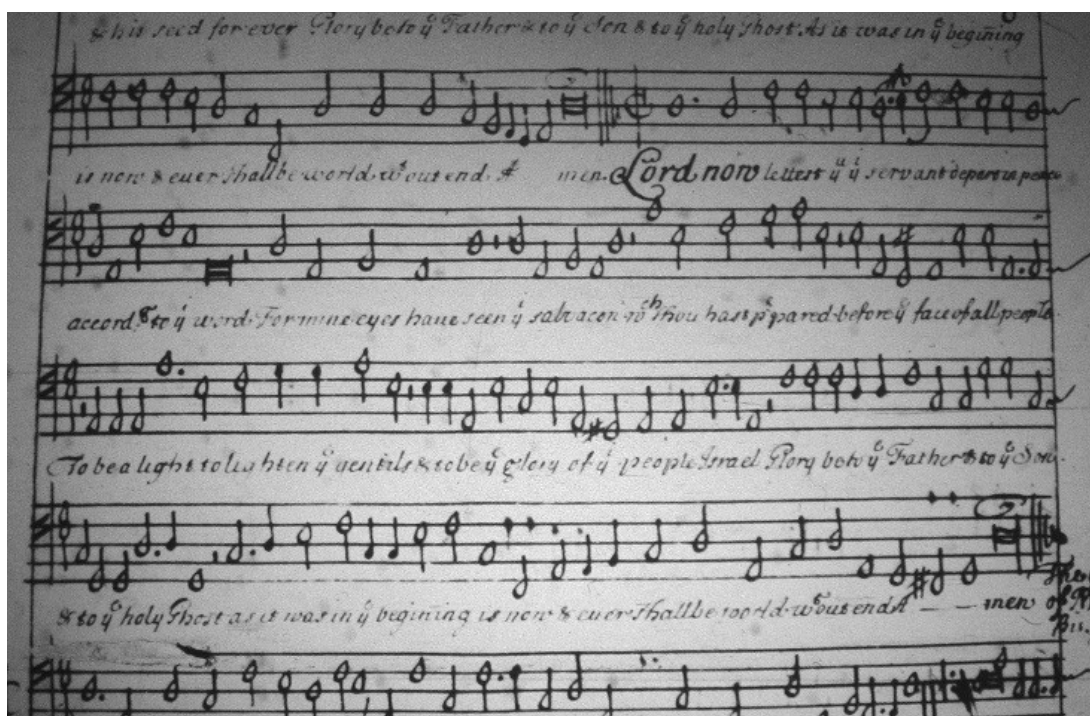 & his seed for ever Glory be to yͤ Father & to yͤ Son & to yͤ holy Ghost As it was in yͤ begiñing
is now & ever shall be world wᵗʰout end A men. Lord now lettest yᵘ yʳ servant depart in peace
accordᵍ to yʳ word For mine eyes have seen yʳ salvacon wᶜʰ thou hast pʳpared before yͤ face of all people
To be a light to lighten yͤ gentils & to be yͤ glory of yʳ people Israel Glory be to yͤ Father & to yͤ Son
& to yͤ holy Ghost as it was in yͤ begining is now & ever shall be world wᵗʰout end A — — men
of